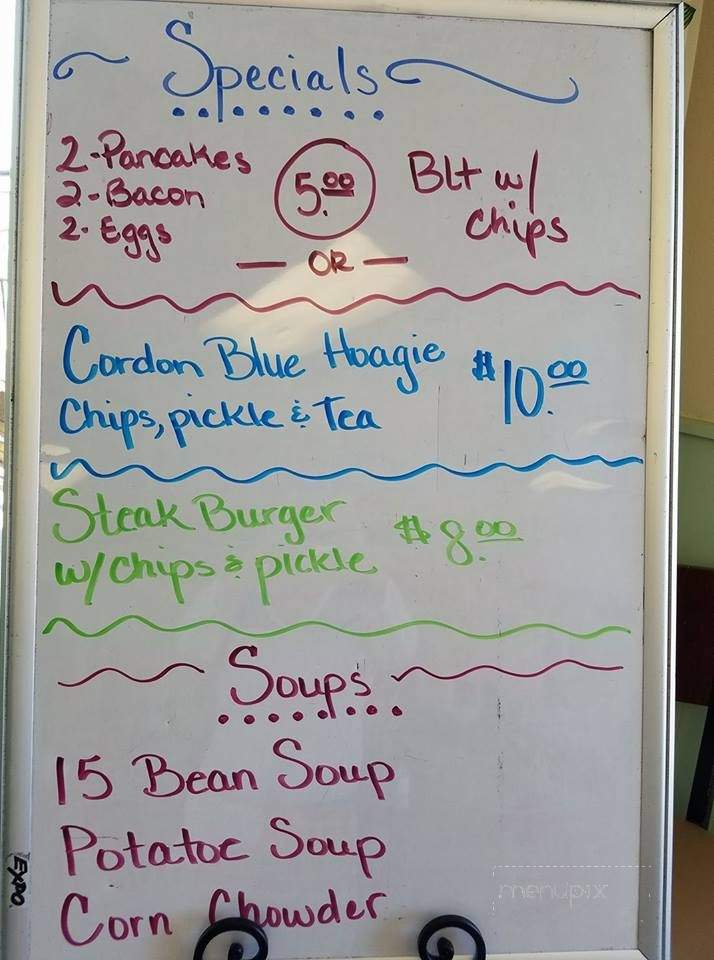 Specials
2-Pancakes
2-Bacon
2-Eggs
5.00
Blt w/
chips
— OR —
Cordon Blue Hoagie
Chips, pickle & Tea
$10.00
Steak Burger
w/chips & pickle
$8.00
Soups
15 Bean Soup
Potatoe Soup
Corn Chowder
EXPO
menupix